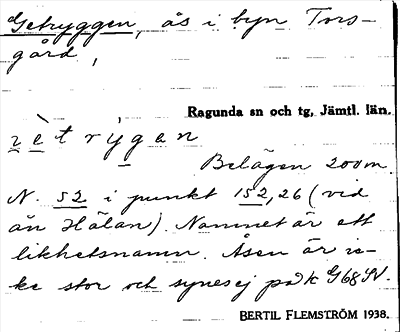 Getryggen, ås i byn Tors-
gård,
Ragunda sn och tg, Jämtl. län.
Belägen 200 m
N. 52 i punkt 152,26 (vid
ån Hålan). Namnet är ett
likhetsnamn. Åsen är ic-
ke stor och synes ej på k G68 SV.
BERTIL FLEMSTRÖM 1938.